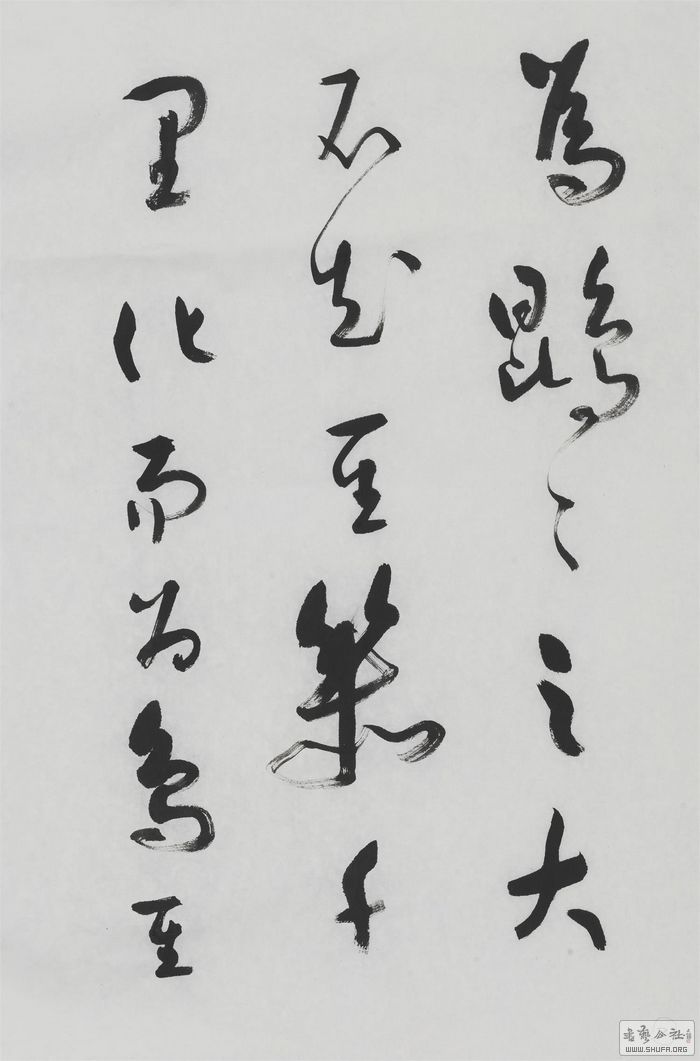 為鵾〻之大
不知其幾千
里化而為鳥其
書藝公社
WWW.SHUFA.ORG